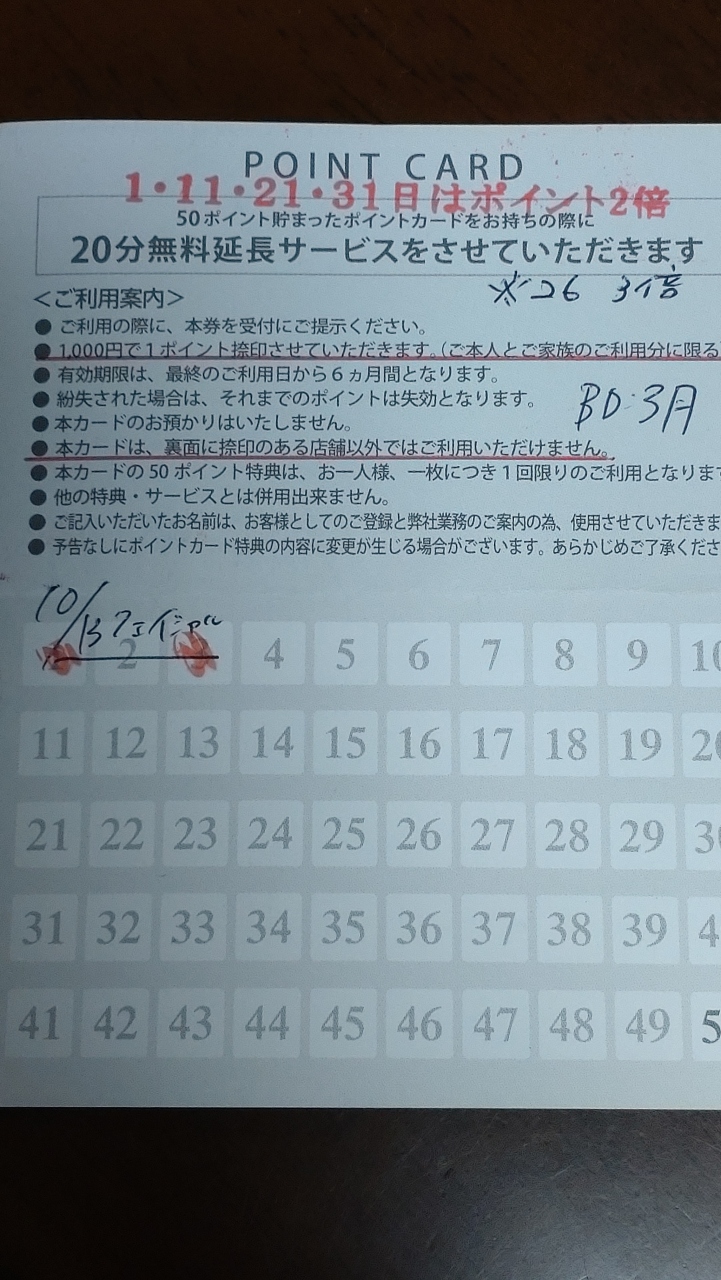 POINT CARD
1・11・21・31日はポイント2倍
50ポイント貯まったポイントカードをお持ちの際に
20分無料延長サービスをさせていただきます
※26 3倍
＜ご利用案内＞
● ご利用の際に、本券を受付にご提示ください。
● 1,000円で1ポイント捺印させていただきます。(ご本人とご家族のご利用分に限る
● 有効期限は、最終のご利用日から6ヵ月間となります。
● 紛失された場合は、それまでのポイントは失効となります。
BD:3月
● 本カードのお預かりはいたしません。
● 本カードは、裏面に捺印のある店舗以外ではご利用いただけません。
● 本カードの50ポイント特典は、お一人様、一枚につき1回限りのご利用となりま
● 他の特典・サービスとは併用出来ません。
● ご記入いただいたお名前は、お客様としてのご登録と弊社業務のご案内の為、使用させていただきま
● 予告なしにポイントカード特典の内容に変更が生じる場合がございます。あらかじめご了承くださ
10/13 フェイシャル
2 4 5 6 7 8 9 10
11 12 13 14 15 16 17 18 19 20
21 22 23 24 25 26 27 28 29 30
31 32 33 34 35 36 37 38 39 4
41 42 43 44 45 46 47 48 49 5